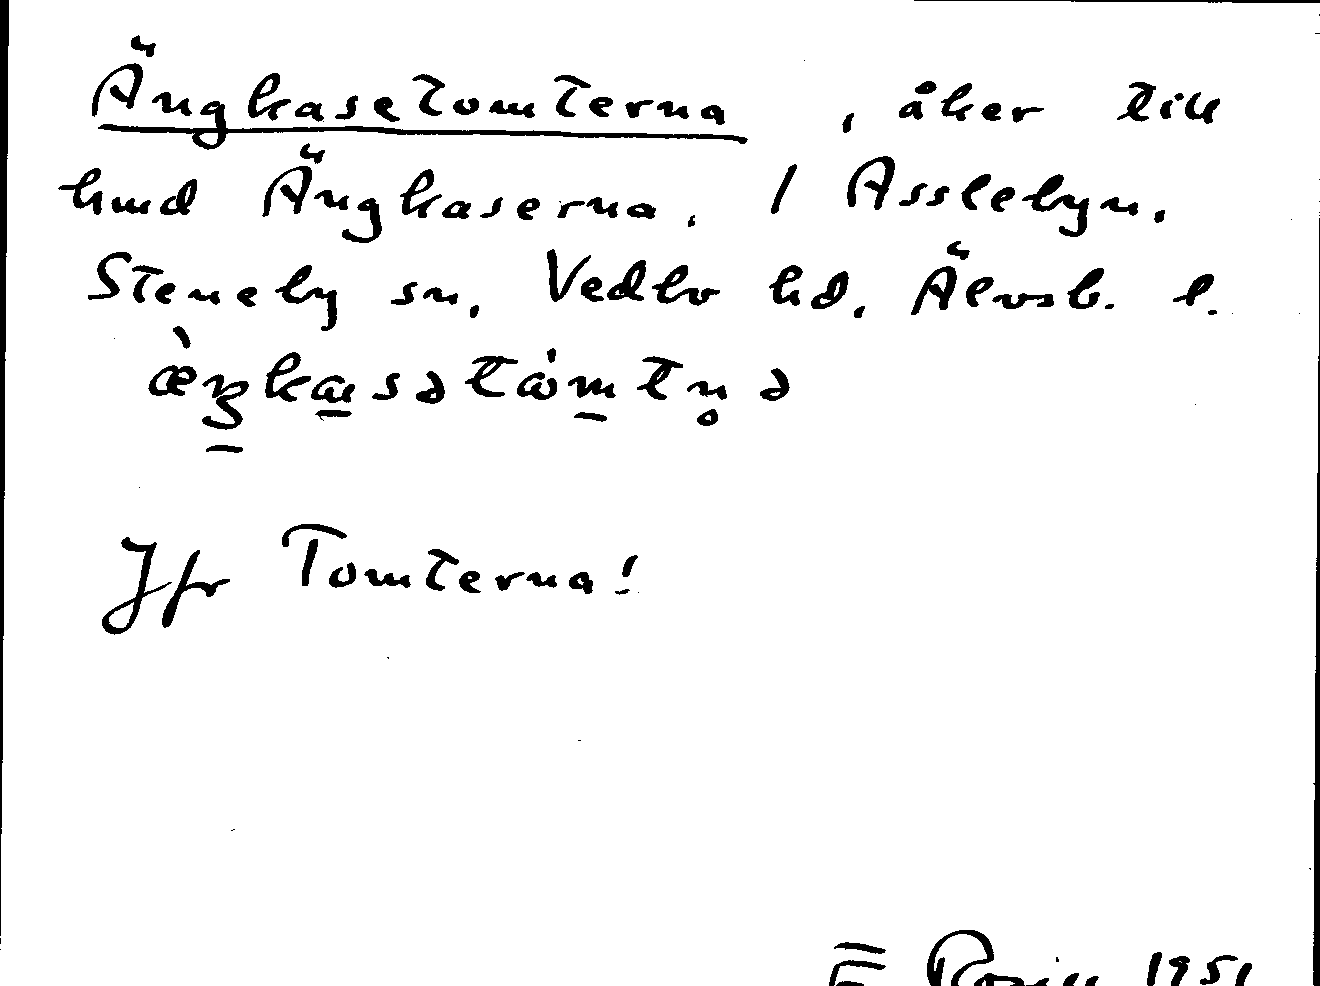 Ängkasetomterna , åker till
hmd Ängkaserna, / Asslebyn,
Steneby sn, Vedbo hd, Älvsb. l.
Jfr Tomterna!
1951